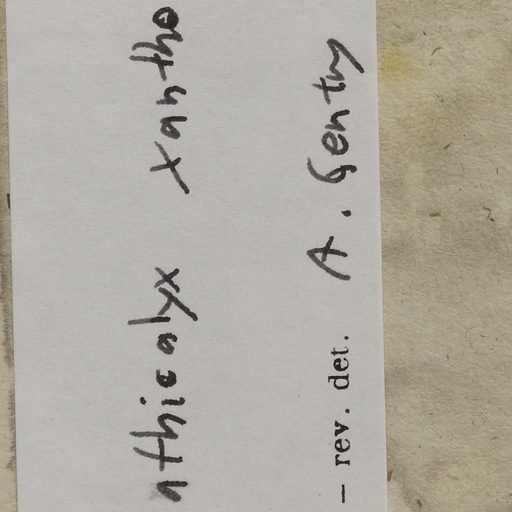 athicalyx xantho
– rev. det. A. Gentry